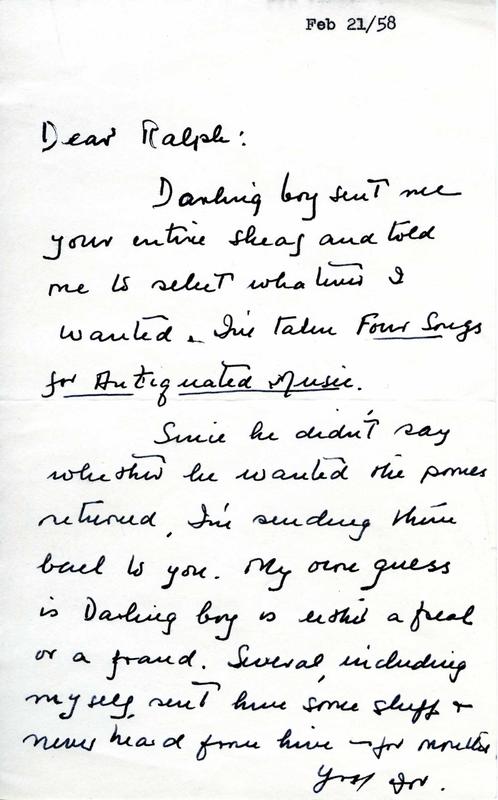 Feb 21/58
Dear Ralph:
Darling boy sent me
your entire sheaf and told
me to select whatever I
wanted. I've taken Four Songs
for Antiquated Music.
Since he didn't say
whether he wanted the pomes
returned, I'm sending them
back to you. My own guess
is Darling boy is either a freak
or a fraud. Several, including
myself, sent him some stuff &
never heard from him — for months
Yrs/